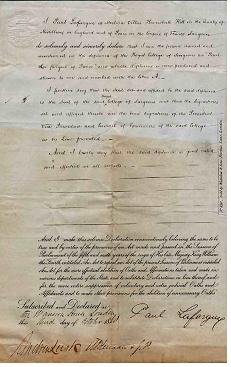 I Paul Lafargue of Modena Villas Haverstock Hill in the County of
Middlesex in England and of Paris in the Empire of France Surgeon
do solemnly and sincerely declare that I am the person named and
mentioned in the diploma of the Royal College of Surgeons as "Paul
shewn to me and marked with the letter A
I further say that the seal set and affixed to the said diploma
is the Seal of the said College of Surgeons and that the signatures
set and affixed thereto are the true signatures of the President
Vice Presidents and Council of Examiners of the said College
as by Law provided
And I lastly say that the said diploma is good valid
and effectual in all respects
And I make this solemn Declaration conscientiously believing the same to be
true and by virtue of the provisions of an Act made and passed in the Session of
Parliament of the fifth and sixth years of the reign of His late Majesty King William
the Fourth intituled An Act to repeal an Act of the present Session of Parliament intituled
An Act for the more effectual abolition of Oaths and Affirmations taken and made in
various departments of the State and to substitute Declarations in lieu thereof and
for the more entire suppression of voluntary and extra judicial Oaths and
Affidavits and to make other provisions for the abolition of unnecessary Oaths
Subscribed and Declared
London
day of
Paul Lafargue